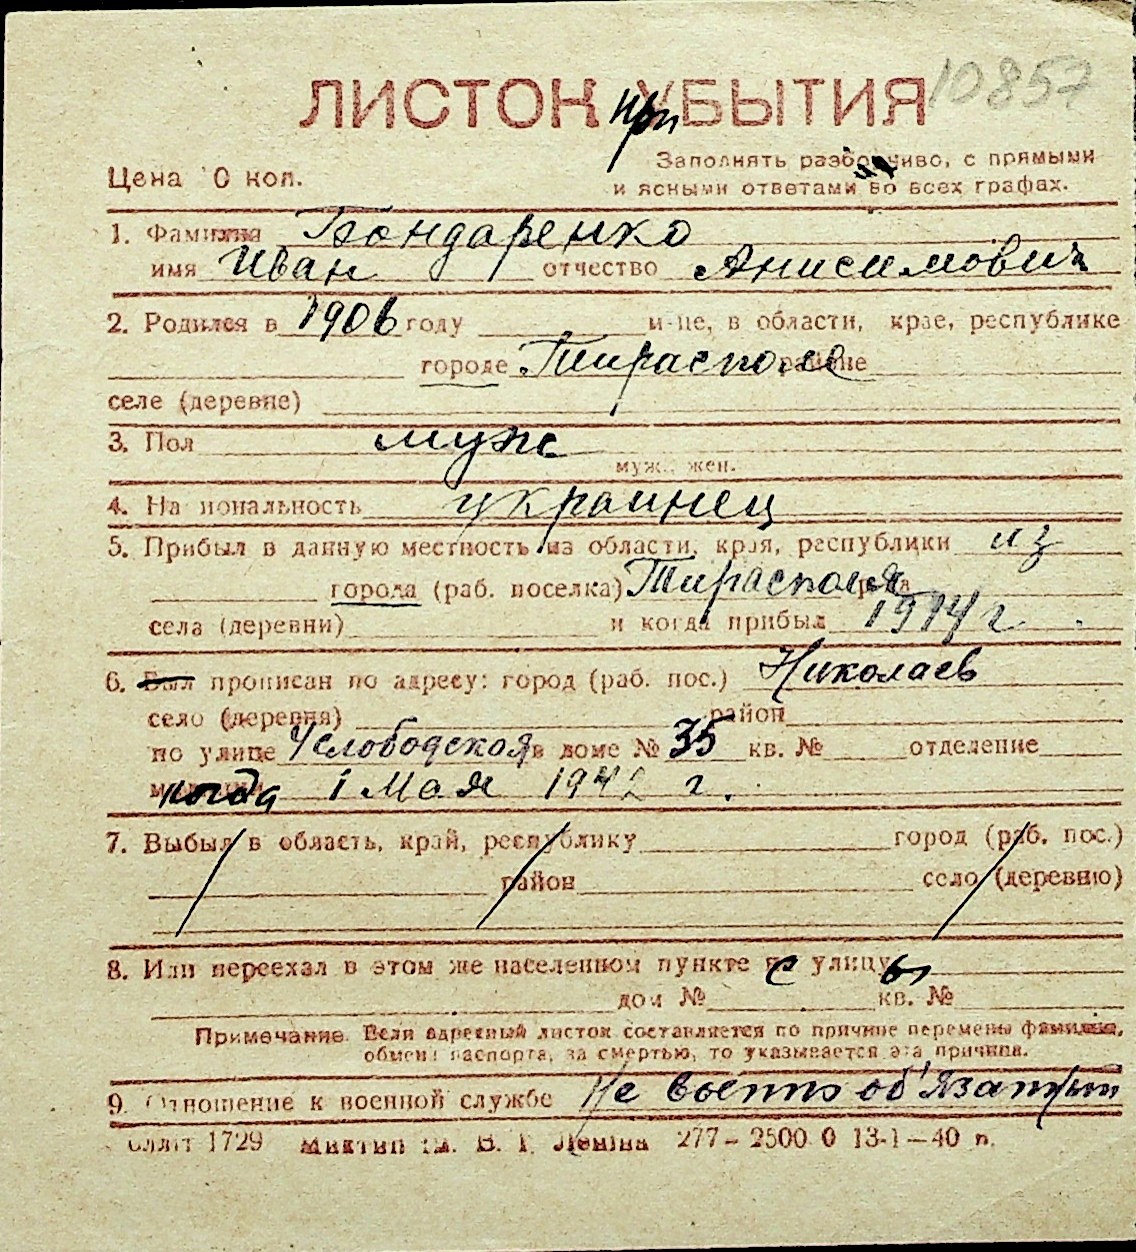 10857
ЛИСТОК при УБЫТИЯ
Цена 10 коп.
Заполнять разборчиво, с прямыми
и ясными ответами во всех графах.
1. Фамилия Бондаренко
имя Иван отчество Анисимович
2. Родился в 1906 году и-це, в области, крае, республике
городе Тирасполе районе
селе (деревне)
3. Пол муж
муж., жен.
4. Национальность украинец
5. Прибыл в данную местность из области, края, республики из
города (раб. поселка) Тирасполя р-на
села (деревни) и когда прибыл 1914 г.
6. Был прописан по адресу: город (раб. пос.) Николаев
село (деревня) район
по улице Слободская в доме № 35 кв. № отделение
когда 1 Мая 1942 г.
7. Выбыл в область, край, республику город (раб. пос.)
район село (деревню)
8. Или переехал в этом же населенном пункте с улицы
дом № кв. №
Примечание. Если адресный листок составляется по причине перемены фамилии,
обмена паспорта, за смертью, то указывается эта причина.
9. Отношение к военной службе Не военно об'язатный
1729 В. І. Леніна 277—2500 0 13-1—40 п.